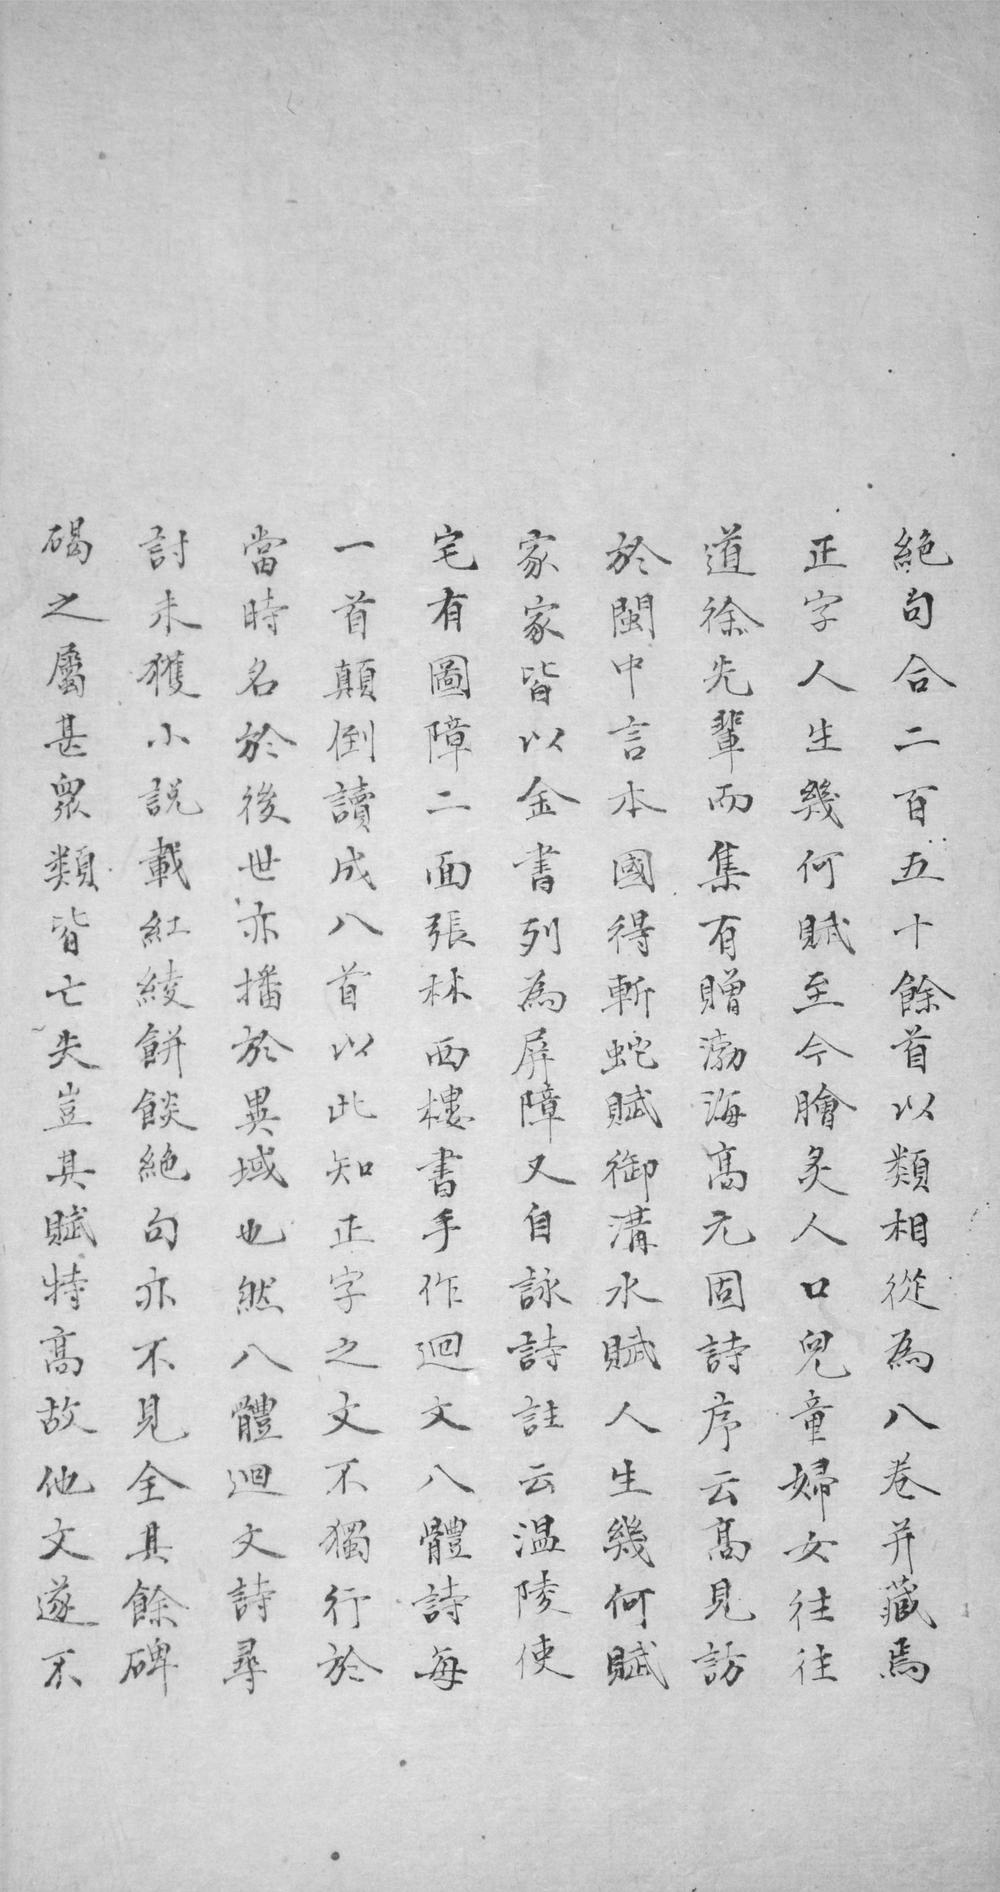 絶句合二百五十餘首以類相從為八卷并藏焉
正字人生幾何賦至今膾炙人口兒童婦女往往
道徐先輩而集有贈渤海高元固詩序云高見訪
於閩中言本國得斬蛇賦御溝水賦人生幾何賦
家家皆以金書列為屏障又自詠詩註云温陵使
宅有圖障二面張林西樓書手作迴文八體詩每
一首顛倒讀成八首以此知正字之文不獨行於
當時名於後世亦播於異域也然八體迴文詩尋
討未獲小説載紅綾餅餤絶句亦不見全其餘碑
碣之屬甚衆類皆亡失豈其賦特高故他文遂不